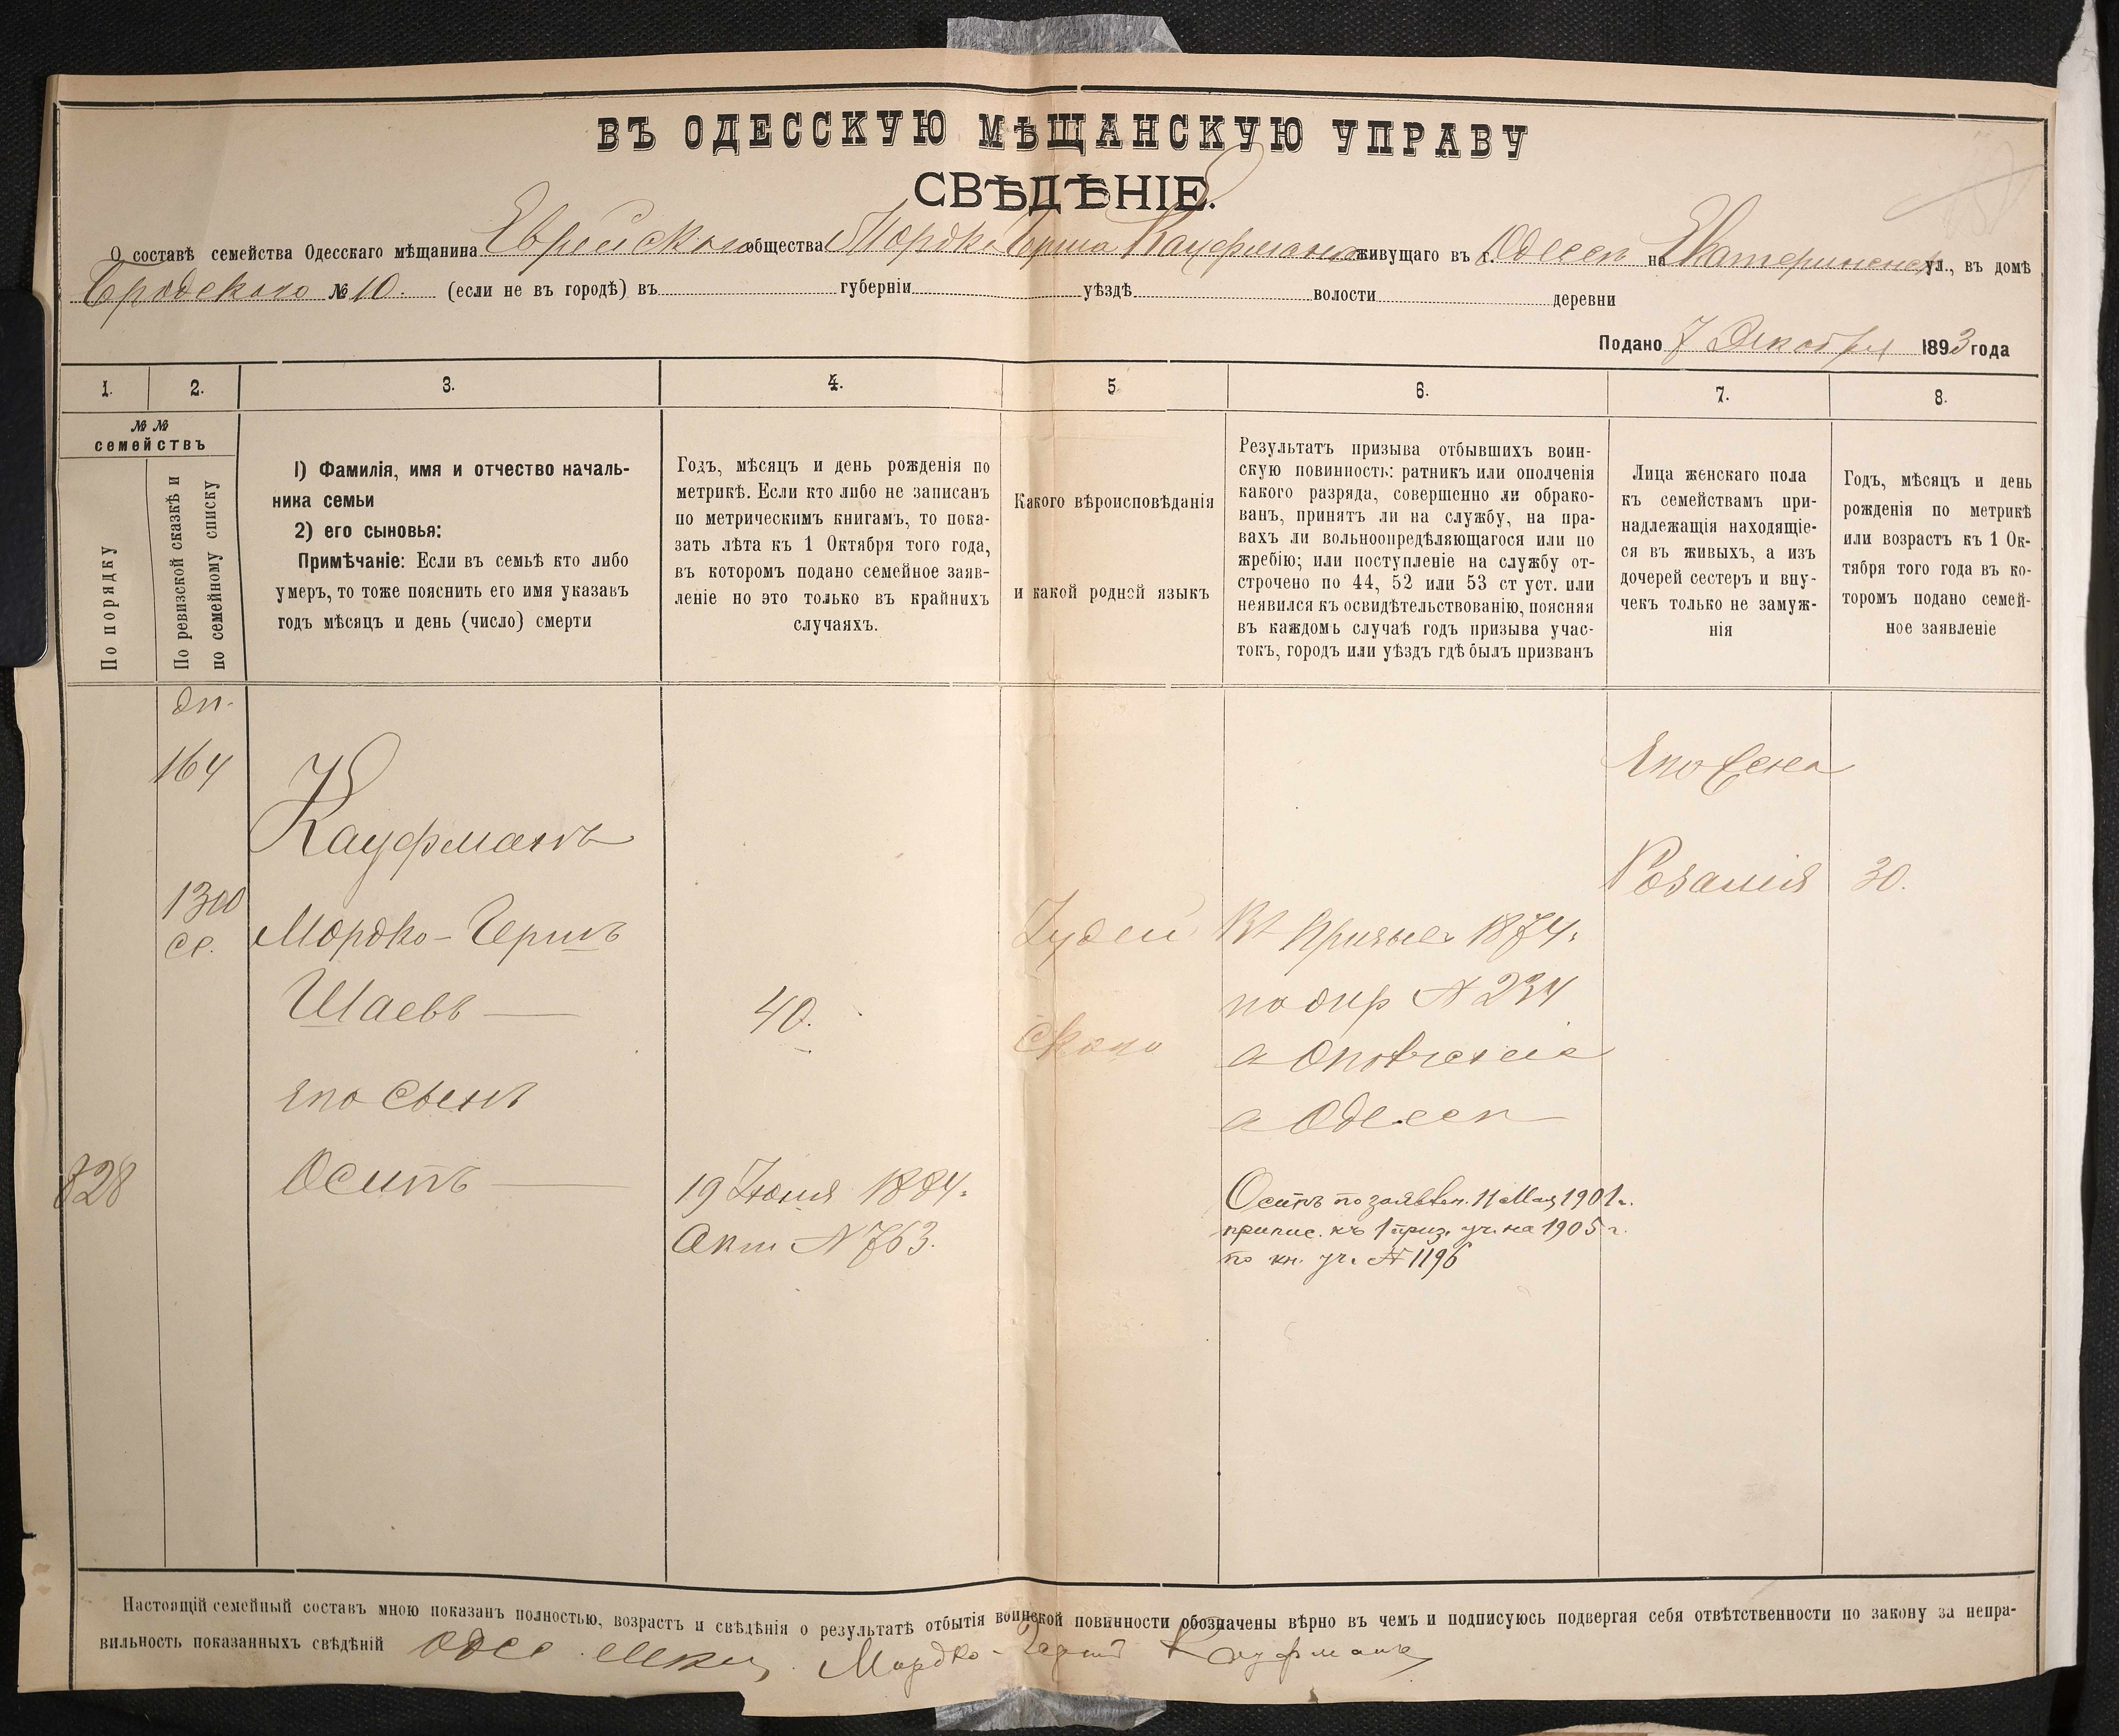 ВЪ ОДЕССКУЮ МѢЩАНСКУЮ УПРАВУ
СВѢДѢНІЕ.
О составѣ семейства Одесскаго мѣщанина Еврейскаго общества Мордко Герша Кауфмана живущаго въ г. Одессѣ на Екатерининск ул., въ домѣ
Бродскаго № 10. (если не въ городѣ) въ губерніи уѣздѣ волости деревни
Подано 7 Декабря 1893 года
1. 2. 3. 4. 5 6. 7. 8.
№ № семействъ
По порядку
По ревизской сказкѣ и по семейному списку
1) Фамилія, имя и отчество началь-
ника семьи
2) его сыновья:
Примѣчаніе: Если въ семьѣ кто либо
умеръ, то тоже пояснить его имя указавъ
годъ мѣсяцъ и день (число) смерти
Годъ, мѣсяцъ и день рожденія по
метрикѣ. Если кто либо не записанъ
по метрическимъ книгамъ, то пока-
зать лѣта къ 1 Октября того года,
въ которомъ подано семейное заяв-
леніе но это только въ крайнихъ
случаяхъ.
Какого вѣроисповѣданія
и какой родной языкъ
Результатъ призыва отбывшихъ воин-
скую повинность: ратникъ или ополченія
какого разряда, совершенно ли обрако-
ванъ, принятъ ли на службу, на пра-
вахъ ли вольноопредѣляющагося или по
жребію; или поступленіе на службу от-
строчено по 44, 52 или 53 ст уст. или
неявился къ освидѣтельствованію, поясняя
въ каждомъ случаѣ годъ призыва учас-
токъ, городъ или уѣздъ гдѣ былъ призванъ
Лица женскаго пола
къ семействамъ при-
надлежащія находящіе-
ся въ живыхъ, а изъ
дочерей сестеръ и вну-
чекъ только не замуж-
нія
Годъ, мѣсяцъ и день
рожденія по метрикѣ
или возрастъ къ 1 Ок-
тября того года въ ко-
торомъ подано семей-
ное заявленіе
дп.
164
Его жена
Кауфманъ
Розалія 30.
1300
Мордко-Гершъ
Іудей
Въ призыв 1874
Шаевъ
40.
№ 234
скаго
Его сынъ
Одессѣ
828
Осипъ
19 Іюня 1884.
Актъ № 763.
Осипъ по заявлен. 11 Мая 1901 г.
припис. къ 1 приз. уч. на 1905 г.
по кн. уч. № 1196
Настоящій семейный составъ мною показанъ полностью, возрастъ и свѣдѣнія о результатѣ отбытія воинской повинности обозначены вѣрно въ чемъ и подписуюсь подвергая себя отвѣтственности по закону за непра-
вильность показанныхъ свѣдѣній Мордко-Герш Кауфманъ